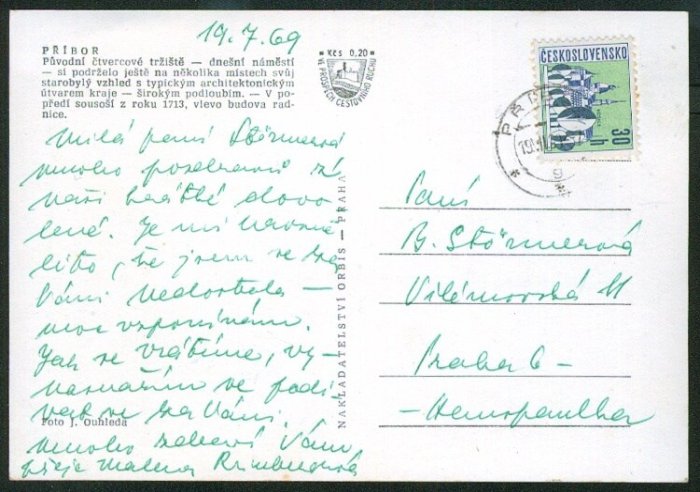 19.7.69
PŘÍBOR
Původní čtvercové tržiště — dnešní náměstí
— si podrželo ještě na několika místech svůj
starobylý vzhled s typickým architektonickým
útvarem kraje — širokým podloubím. — V po-
předí sousoší z roku 1713, vlevo budova rad-
nice.
Kčs 0,20
VE PROSPĚCH CESTOVNÍHO RUCHU
ČESKOSLOVENSKO
30 h
Milá paní Störmerová
mnoho pozdravů z
naší krátké dovo-
lené. Je mi
líto, že jsem se k
Vámi nedostala —
moc vzpomínám.
Jak se vrátíme, vy-
nasnažím se podí-
vat se k Vám.
Mnoho zdraví Vám
přeje Malena
Foto J. Ouhleda
NAKLADATELSTVÍ ORBIS — PRAHA
Paní
B. Störmerová
Vilémovská 11
Praha 6 —